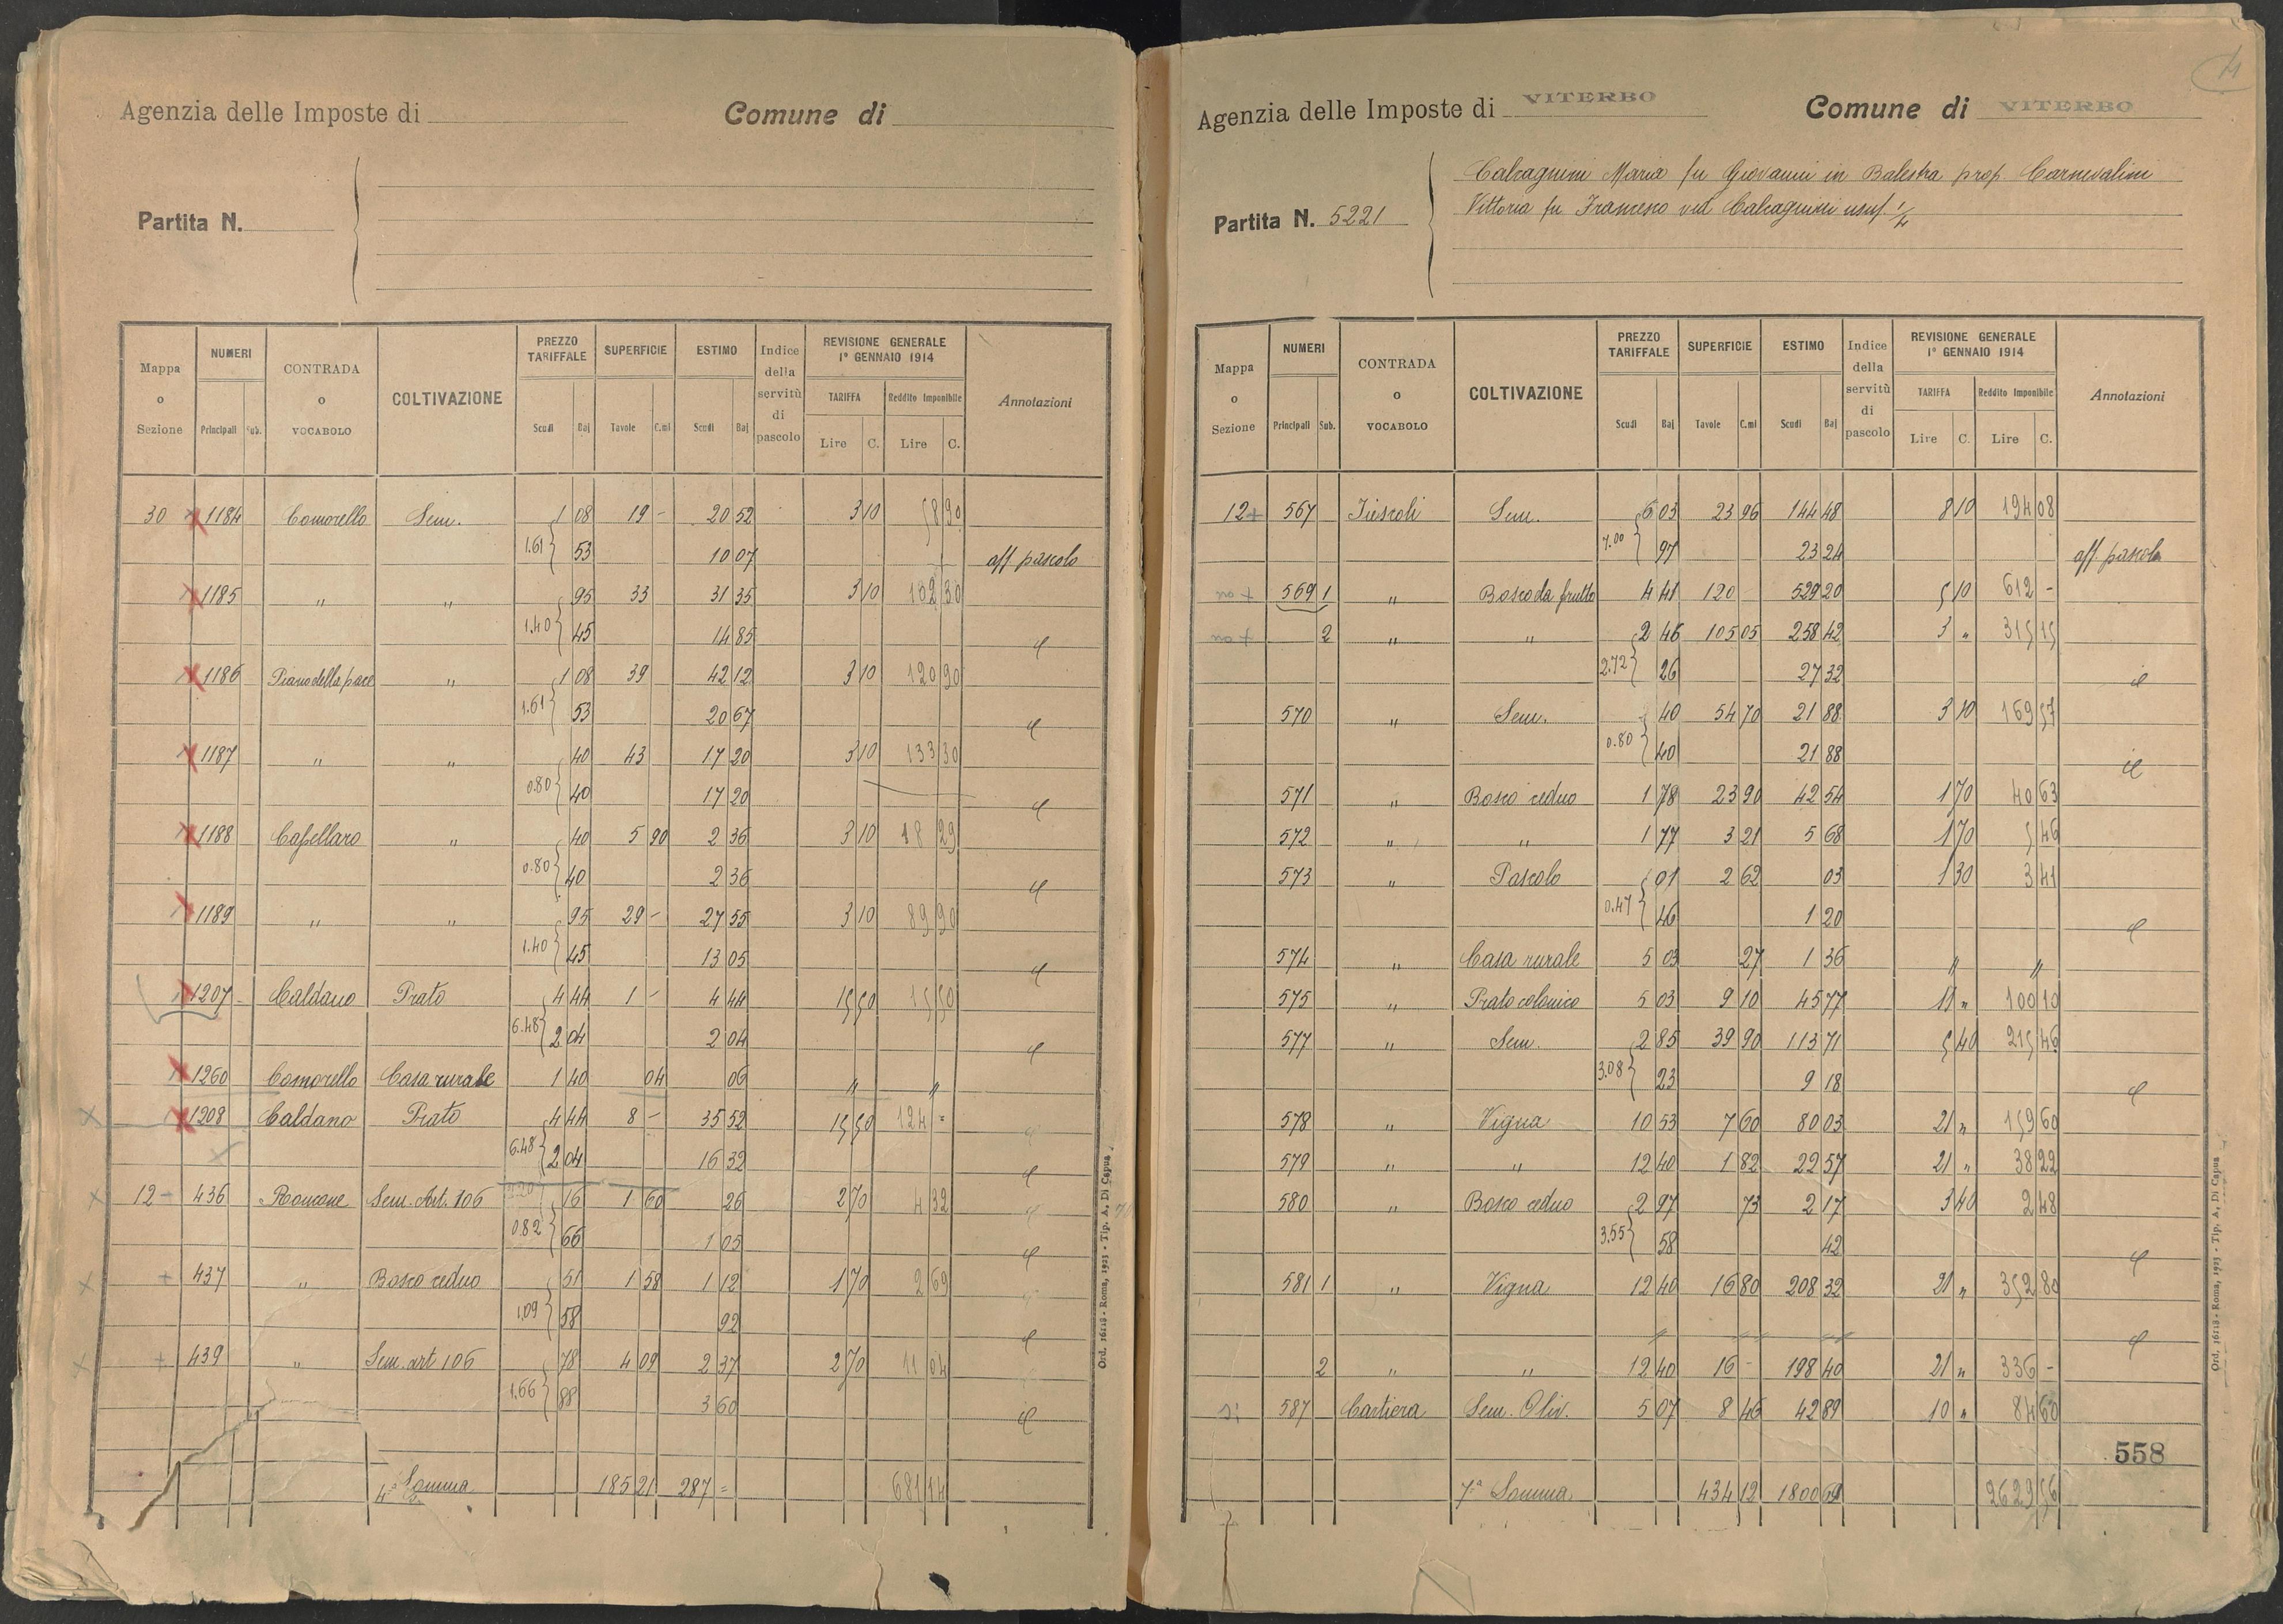 Agenzia delle Imposte di Comune di
Partita N.
Mappa o Sezione NUMERI Principali Sub. CONTRADA o VOCABOLO COLTIVAZIONE PREZZO TARIFFALE Scudi Baj SUPERFICIE Tavole C.mi ESTIMO Scudi Baj Indice della servitù di pascolo REVISIONE GENERALE 1° GENNAIO 1914 TARIFFA Lire C. Reddito Imponibile Lire C. Annotazioni
30 1184 Comorello Sem. 1 08 19 - 20 52 3 10 58 90
1.61 53 10 07 aff pascolo
1185 " " 95 33 31 35 3 10 102 30
1.40 45 14 85
1186 Piano della pace " 1 08 39 42 12 3 10 120 90
1.61 53 20 67
1187 " " 40 43 17 20 3 10 133 30
0.80 40 17 20
1188 " 40 5 90 2 36 3 10 18 29
0.80 40 2 36
1189 " " 95 29 - 27 55 3 10 89 90
1.40 45 13 05
1207 Caldano Prato 4 44 1 - 4 44 15 50 15 50
6.48 2 04 2 04
1260 Comorello Casa rurale 1 40 04 06 " "
1208 Caldano Prato 4 44 8 - 35 52 15 50 124 =
6.48 2 04 16 32
12 436 Roncone Sem. Art. 106 16 1 60 26 2 70 4 32
0.82 66 1 05
437 " Bosco ceduo 51 1 58 1 12 1 70 2 69
1.09 58 92
439 " Sem. art 106 78 4 09 2 37 2 70 11 04
1.66 88 3 60
4ª Somma 185 21 287 = 681 14
Ord. 16118 - Roma, 1923 - Tip. A. Di Capua
Agenzia delle Imposte di VITERBO Comune di VITERBO
Calcagnini Maria fu Giovanni in Balestra prop. Carnevalini
Partita N. 5221 Vittoria fu Francesco ved Calcagnini usuf. 1/4
Mappa o Sezione NUMERI Principali Sub. CONTRADA o VOCABOLO COLTIVAZIONE PREZZO TARIFFALE Scudi Baj SUPERFICIE Tavole C.mi ESTIMO Scudi Baj Indice della servitù di pascolo REVISIONE GENERALE 1° GENNAIO 1914 TARIFFA Lire C. Reddito Imponibile Lire C. Annotazioni
12 + 567 Sem. 6 03 23 96 144 48 8 10 194 08
7.00 97 23 24 aff. pascolo
569 1 " Bosco da frutto 4 41 120 529 20 5 10 612 -
2 " " 2 46 105 05 258 42 3 " 315 15
2.72 26 27 32
570 " Sem. 40 54 70 21 88 3 10 169 57
0.80 40 21 88
571 " Bosco ceduo 1 78 23 90 42 54 1 70 40 63
572 " " 1 77 3 21 5 68 1 70 5 46
573 " Pascolo 01 2 62 03 1 30 3 41
0.47 46 1 20
574 " Casa rurale 5 03 27 1 36 " "
575 " Prato colonico 5 03 9 10 45 77 11 " 100 10
577 " Sem. 2 85 39 90 113 71 5 40 215 46
3.08 23 9 18
578 " Vigna 10 53 7 60 80 03 21 " 159 60
579 " " 12 40 1 82 22 57 21 " 38 22
580 " Bosco ceduo 2 97 73 2 17 3 40 2 48
3.55 58 42
581 1 " Vigna 12 40 16 80 208 32 21 " 352 80
2 " " 12 40 16 - 198 40 21 " 336 -
si 587 Cartiera Sem. Oliv. 5 07 8 46 42 89 10 " 84 60
558
7ª Somma 434 12 1800 69 2629 56
Ord. 16118 - Roma, 1923 - Tip. A. Di Capua